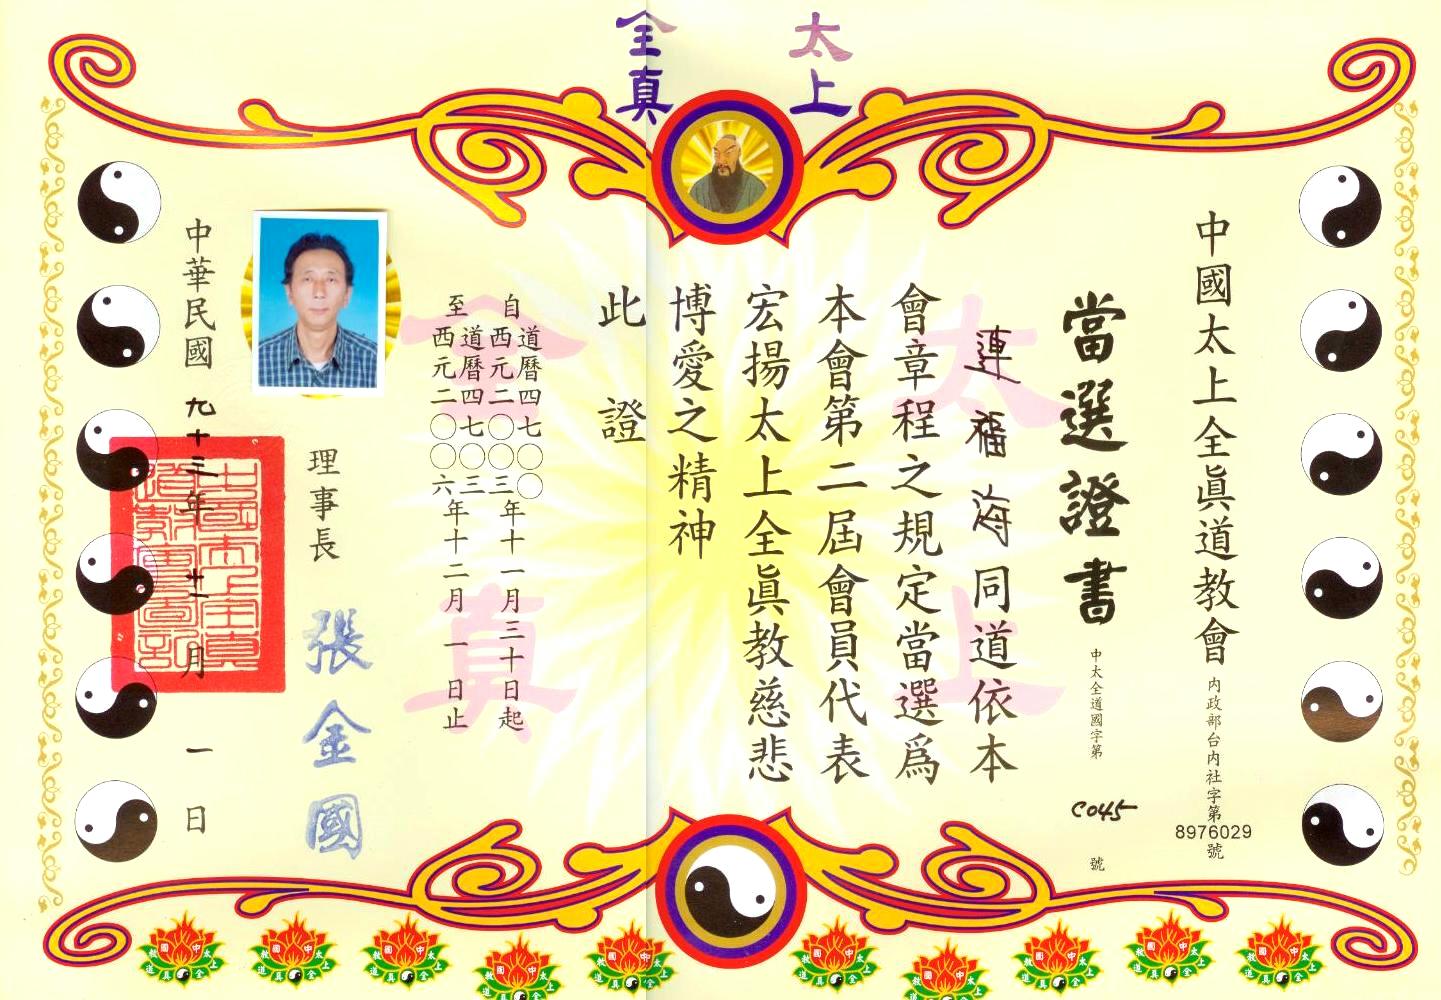 太上
全真
中國太上全眞道教會
內政部台內社字第
8976029
號
當選證書
中太全道國字第
C045
號
連福海同道依本
會章程之規定當選爲
本會第二屆會員代表
宏揚太上全眞教慈悲
博愛之精神
此證
自道曆四七〇〇年十一月三十日起
西元二〇〇三
至道曆四七〇三年十二月一日止
西元二〇〇六
理事長
張金國
中華民國九十三年十一月一日
太上
全真